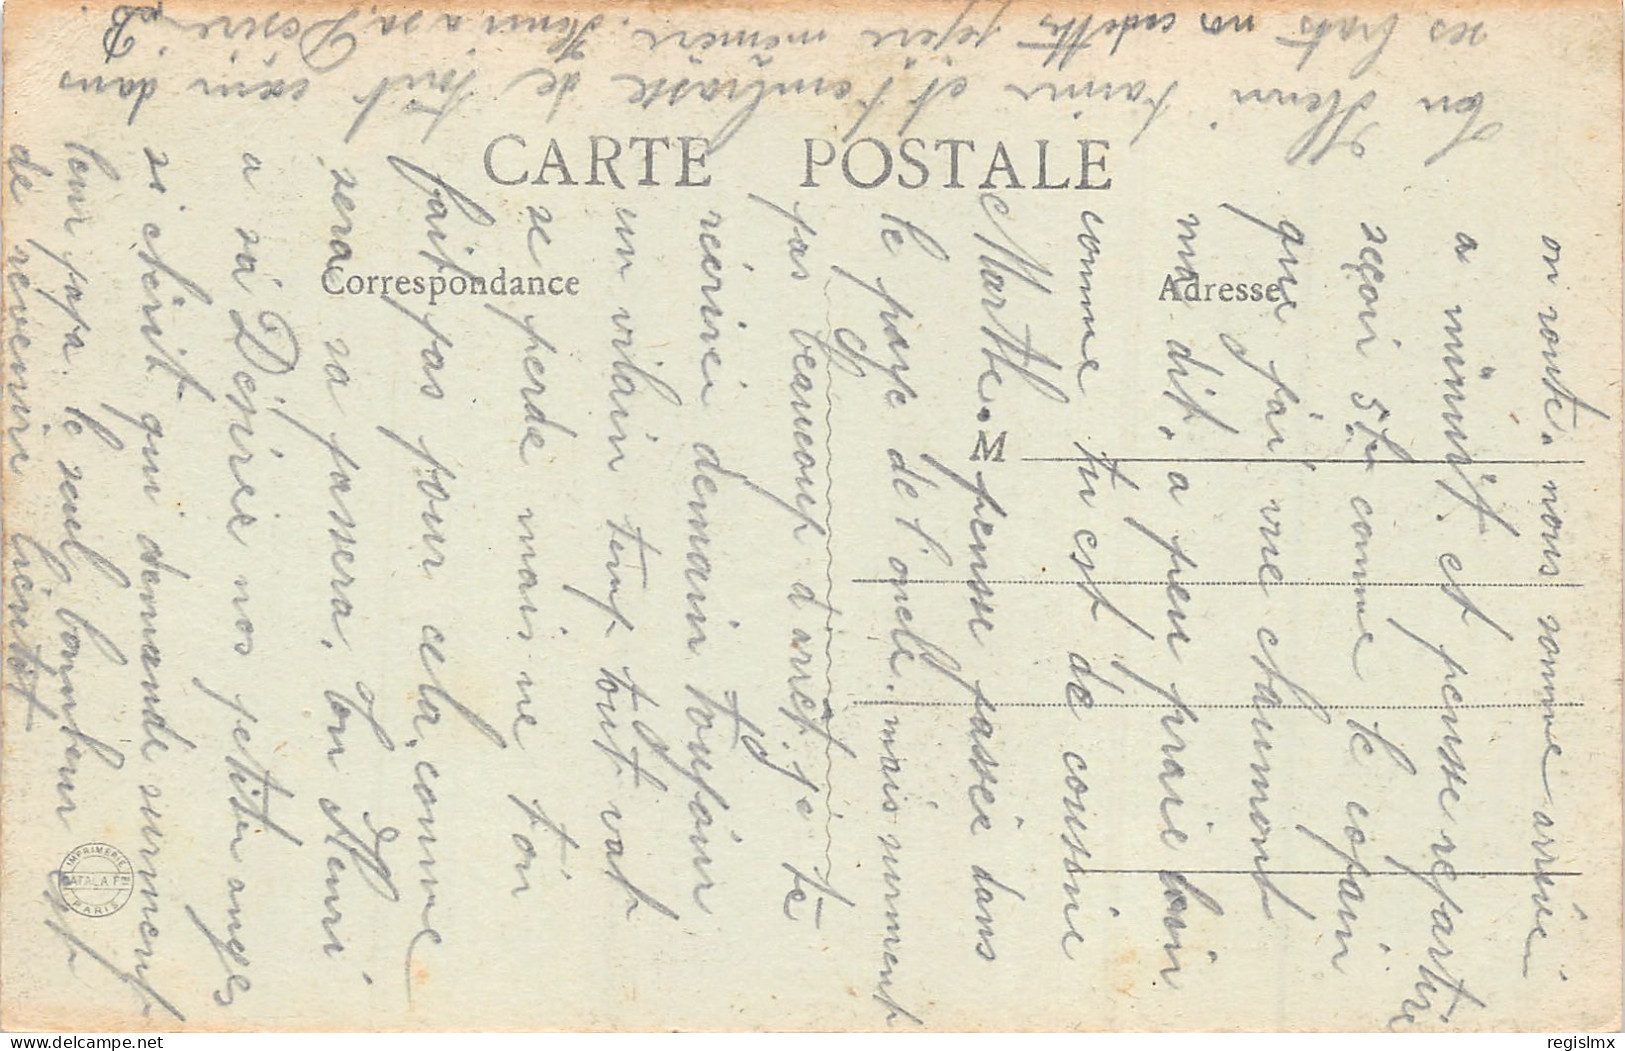 CARTE POSTALE
Correspondance
Adresse
M
on route. nous somme arrivée
a minuit. et pensse repartire
seçoir 5h. comme le copain
que j'ai vue chaumont
ma dit, a peu praie loin
comme tu est de cousine
Marthe. pensse passée dans
le paye de l'oncle. mais surment
pas beaucoup d'arret. je te
récrirei demain toujour
un vilain temp tout vat
se perde mais ne t'on
fait pas pour cela. comme
sera sa passera. ton Henri
a sa Désire nos petite anges
si cherit qui demande surment
leur papa. le seul bonheur est
de revenir bientôt
ton Henri t'aime et t'embrasse de tout cœur dans
ses brats nos cadette père mémère. Henri a sa Desire B
IMPRIMERIE
CATALA F
PARIS
regislmx